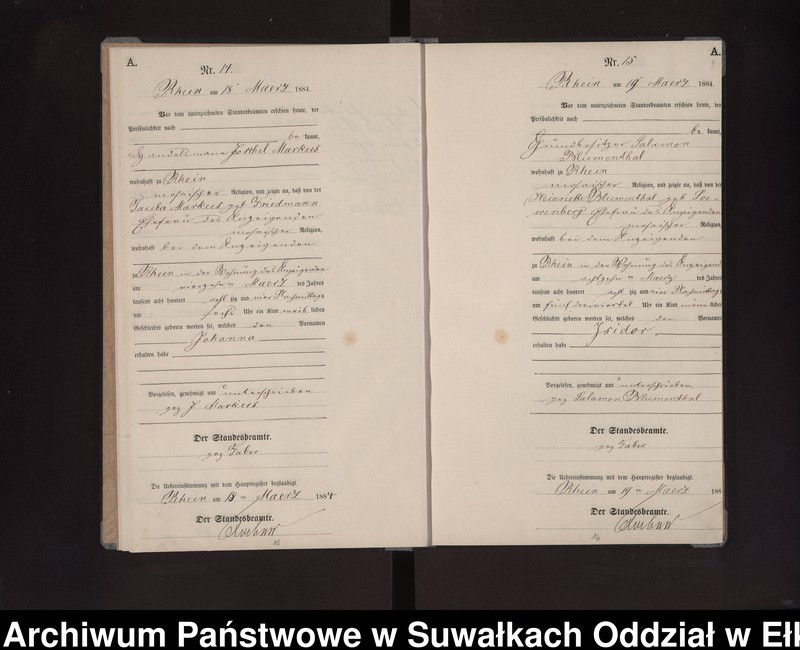 A.
Nr. 14.
Rhein am 18 Maerz 1884.
Vor dem unterzeichneten Standesbeamten erschien heute, der
Persönlichkeit nach
be kannt,
Handelsmann Jorthel Markus
wohnhaft zu Rhein
mosaischer Religion, und zeigte an, daß von der
Markus geb Friedmann
Ehefrau des Anzeigenden
mosaischer Religion,
wohnhaft bei dem Anzeigenden
zu Rhein in der Wohnung des Anzeigenden
am vierzehn ten Maerz des Jahres
tausend acht hundert acht zig und vier Nachmittags
um sechs Uhr ein Kind weib lichen
Geschlechts geboren worden sei, welches den Vornamen
Johanna
erhalten habe
Vorgelesen, genehmigt und unterschrieben
gez J Markus
Der Standesbeamte.
gez Faber
Die Uebereinstimmung mit dem Hauptregister beglaubigt.
Rhein am 18 ten Maerz 1884
Der Standesbeamte.
15
A.
Nr. 15
Rhein am 19 Maerz 1884.
Vor dem unterzeichneten Standesbeamten erschien heute, der
Persönlichkeit nach
be kannt,
Grundbesitzer Salamon
Blumenthal
wohnhaft zu Rhein
mosaischer Religion, und zeigte an, daß von der
Henriette Blumenthal geb Loe-
wenberg Ehefrau des Anzeigenden
mosaischer Religion,
wohnhaft bei dem Anzeigenden
zu Rhein in der Wohnung des Anzeigend
am achtzehn ten Maerz des Jahres
tausend acht hundert acht zig und vier Nachmittags
um fünf dreiviertel Uhr ein Kind männ licher
Geschlechts geboren worden sei, welches den Vornamen
Isidor
erhalten habe
Vorgelesen, genehmigt und unterschrieben
gez Salamon Blumenthal
Der Standesbeamte.
gez Faber
Die Uebereinstimmung mit dem Hauptregister beglaubigt.
Rhein am 19 ten Maerz 188
Der Standesbeamte.
16
Archiwum Państwowe w Suwałkach Oddział w Ełk